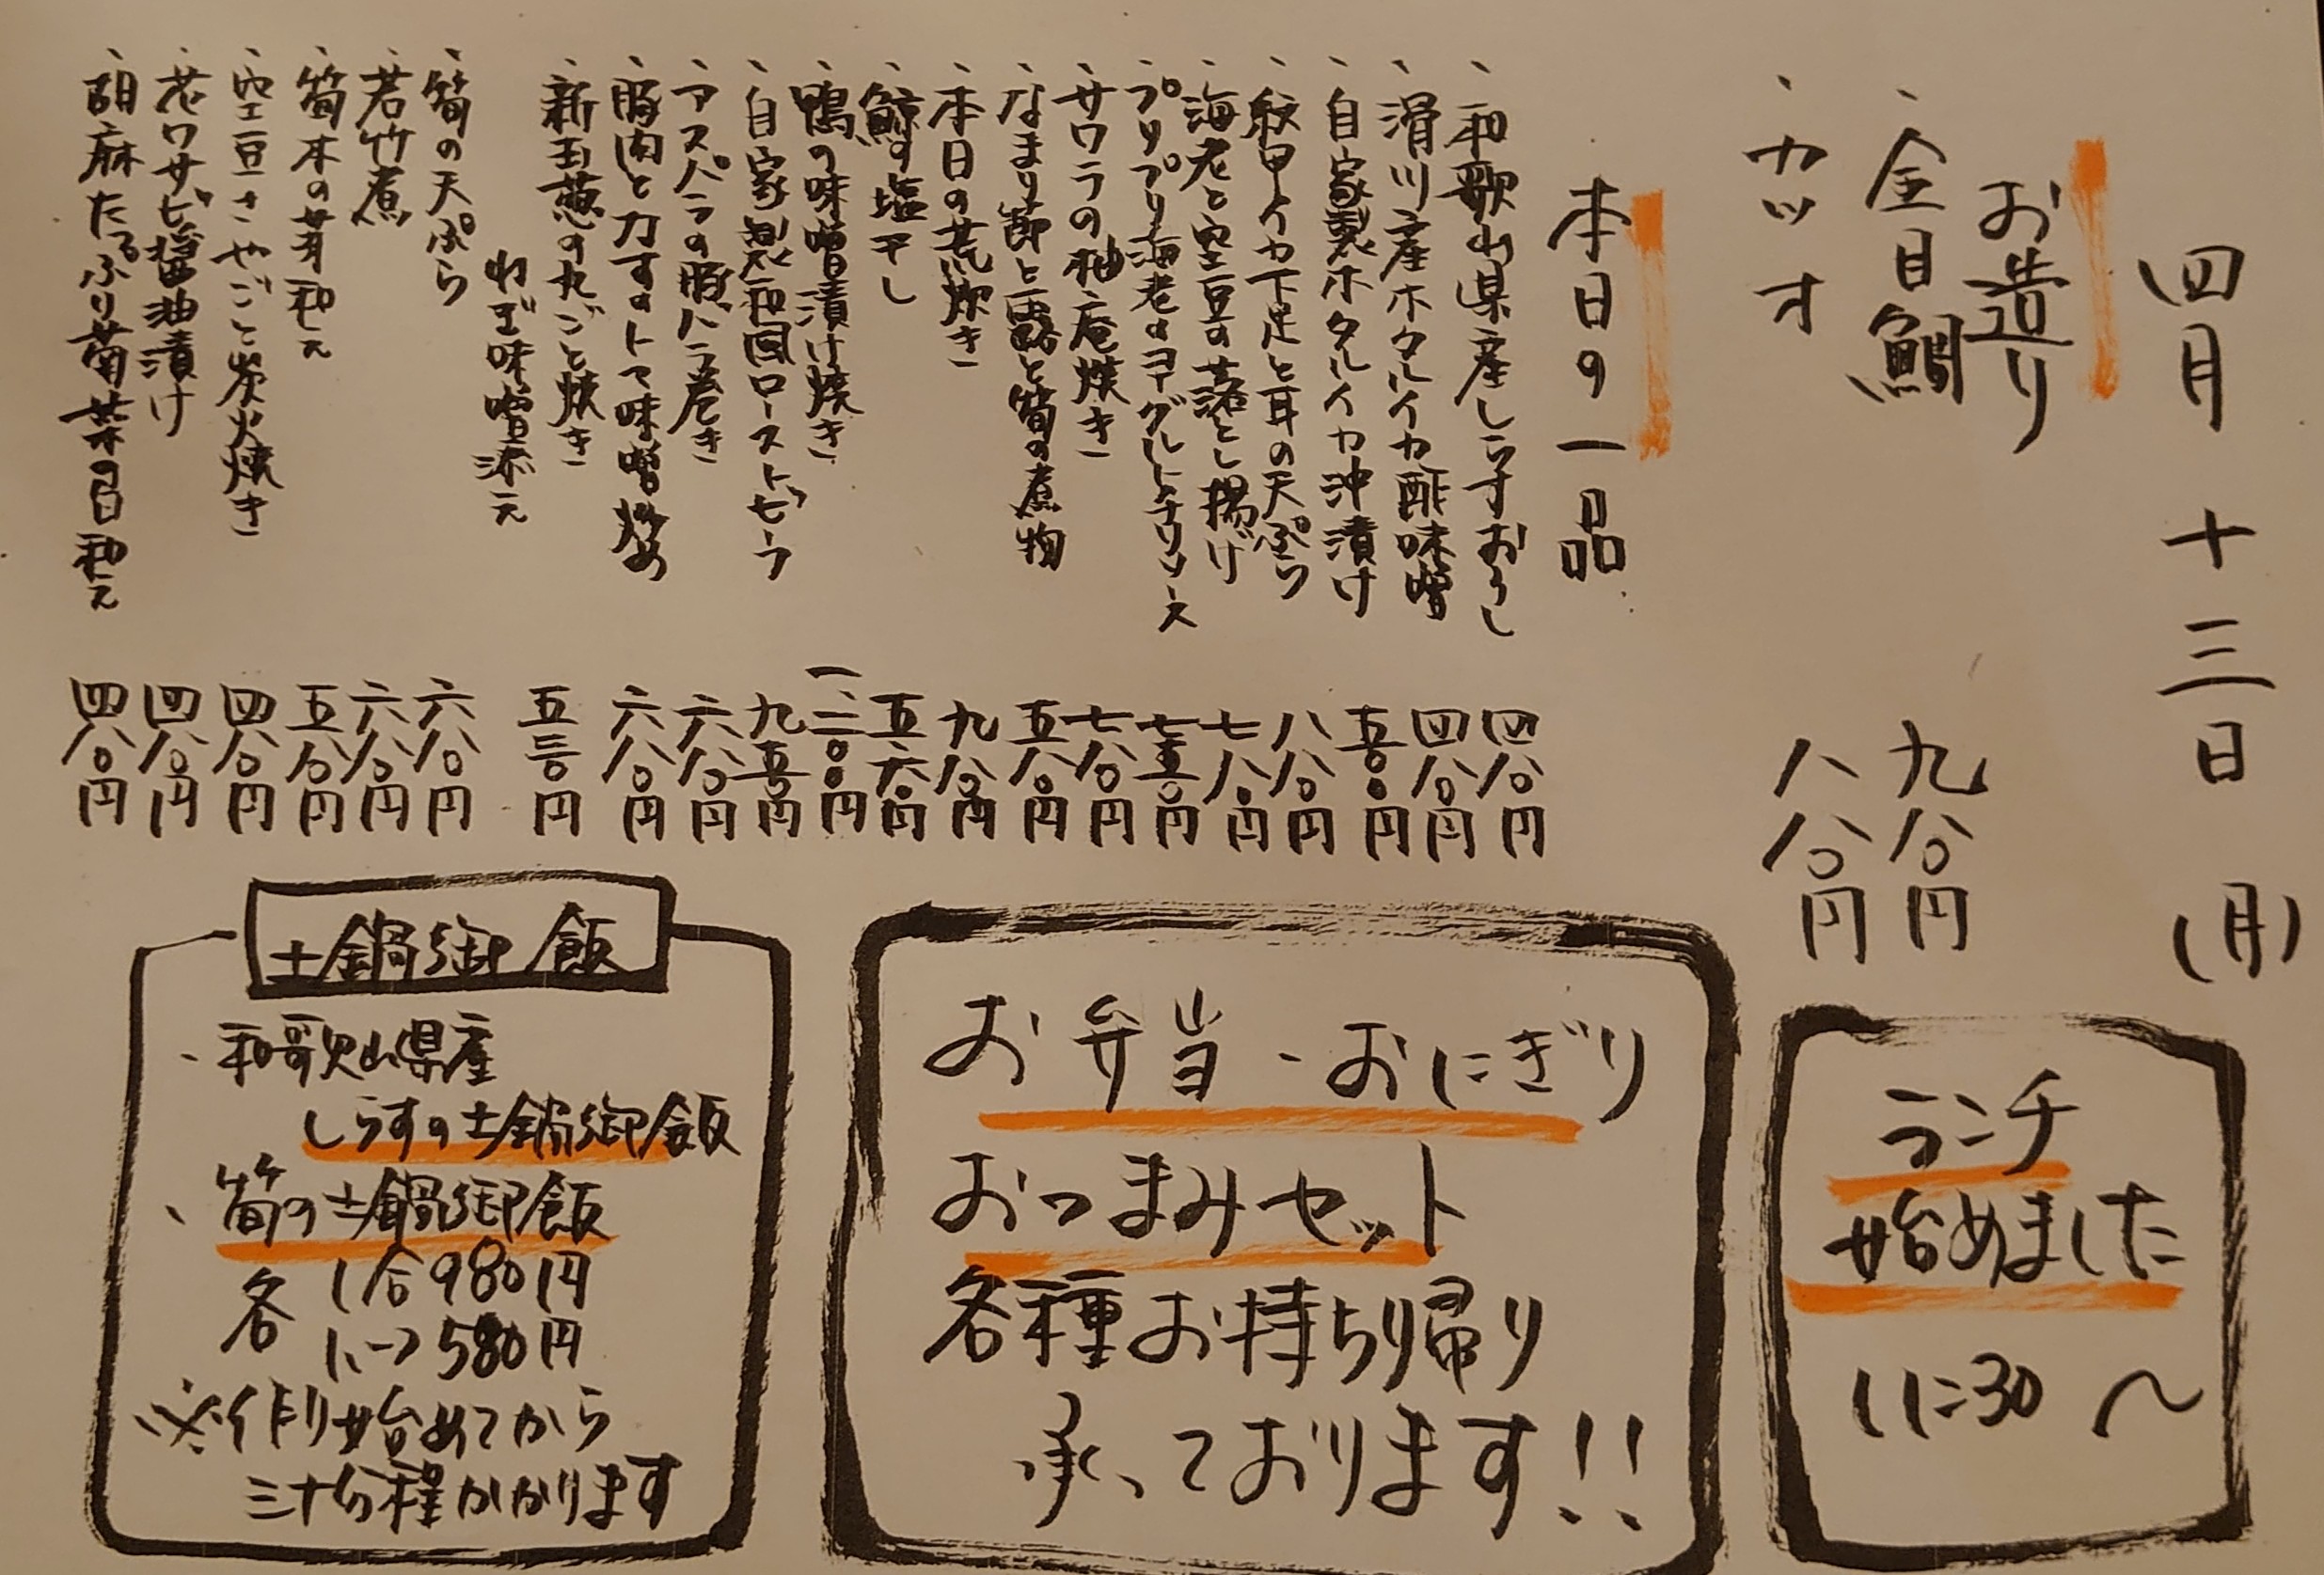 四月十三日(月)
お造り
、金目鯛 九八〇円
、カツオ 八八〇円
本日の一品
、和歌山県産しらすおろし 四八〇円
、滑川産ホタルイカ酢味噌 四八〇円
、自家製ホタルイカ沖漬け 五〇〇円
、紋甲イカ下足と耳の天ぷら 八八〇円
、海老と空豆の落とし揚げ 七八〇円
、プリプリ海老のヨーグルトチリソース 七五〇円
、サワラの柚庵焼き 七八〇円
、なまり節と蕗と筍の煮物 五八〇円
、本日の荒炊き 九八〇円
、鯨の塩干し 五六〇円
、鴨の味噌漬け焼き 一、二〇〇円
、自家製和風ローストビーフ 九五〇円
、アスパラの豚バラ巻き 六八〇円
、豚肉と力すのトマ味噌炒め 六八〇円
、新玉葱の丸ごと焼き
ねぎ味噌添え 五三〇円
、筍の天ぷら 六八〇円
、若竹煮 六八〇円
、筍木の芽和え 五八〇円
、空豆さやごと炭火焼き 四八〇円
、花ワサビ醤油漬け 四八〇円
、胡麻たっぷり菊菜の白和え 四八〇円
ランチ
始めました
11:30〜
お弁当・おにぎり
おつまみセット
各種お持ち帰り
承っております!!
土鍋御飯
、和歌山県産
しらすの土鍋御飯
、筍の土鍋御飯
各 1合980円
1/2 580円
※作り始めてから
三十分程かかります